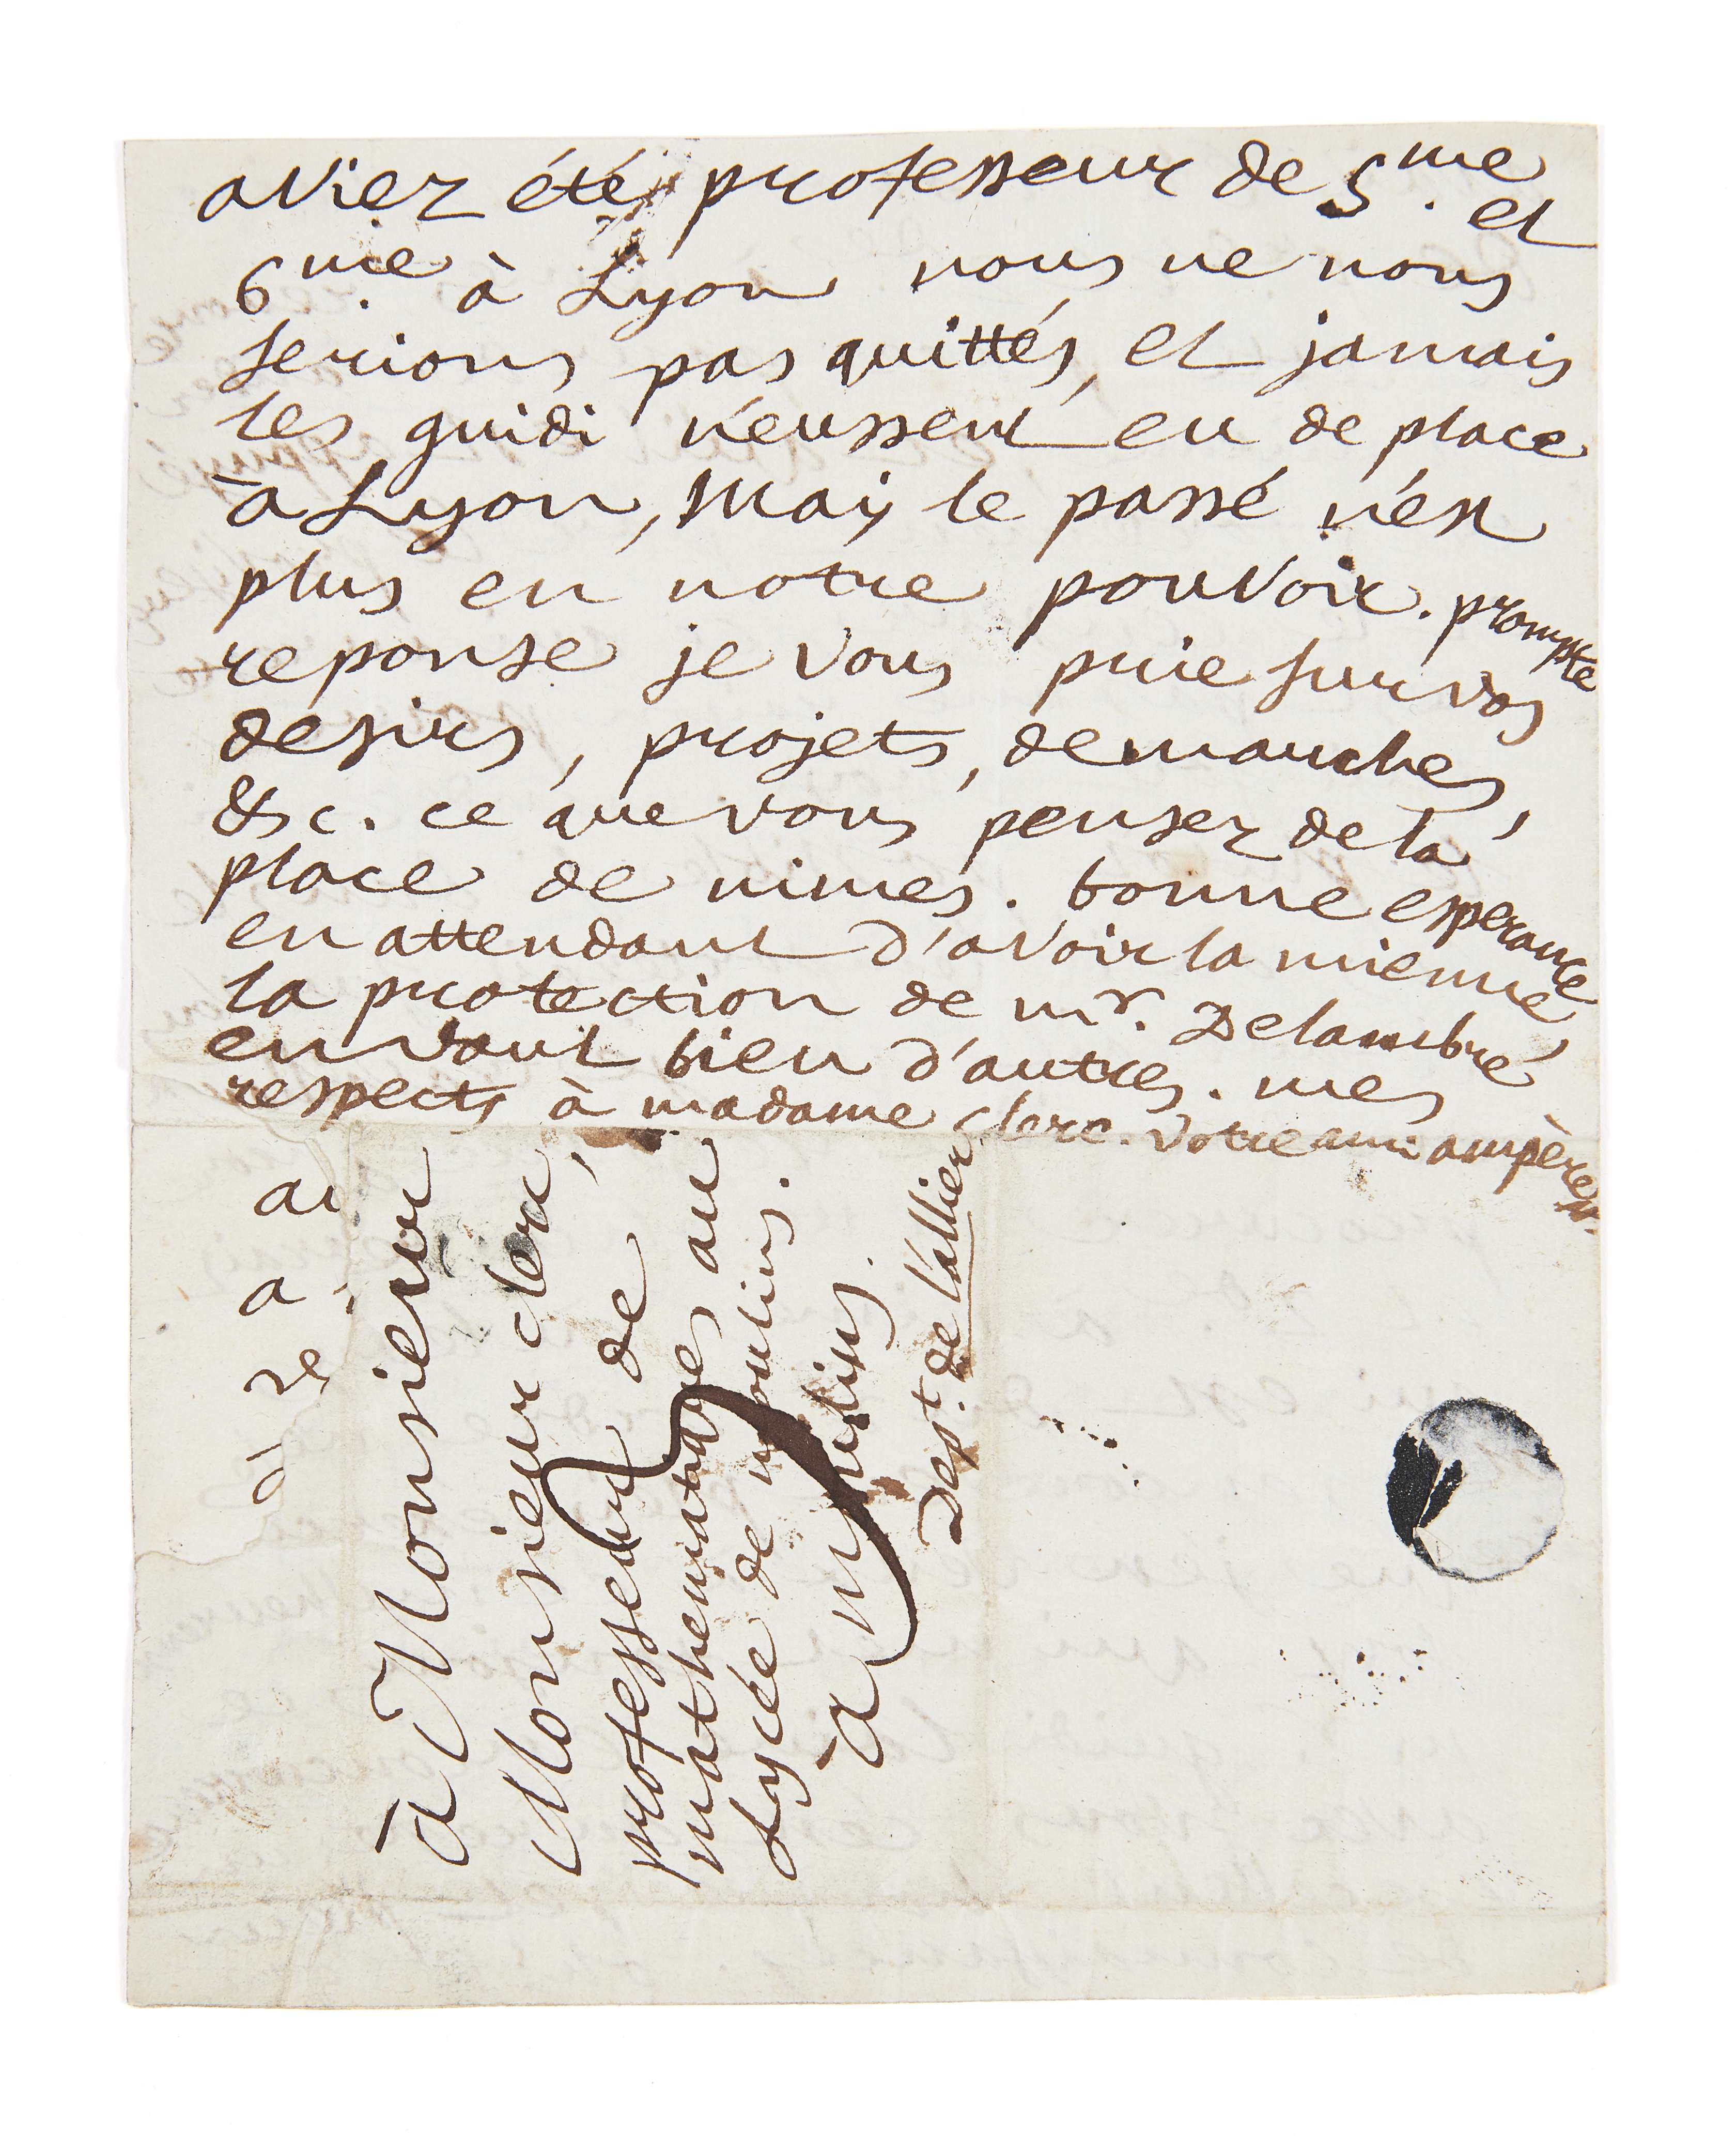 aviez été professeur de 5.me et
6.me à Lyon nous ne nous
serions pas quittés, et jamais
les guidi n'eussent eu de place
à Lyon, mais le passé n'est
plus en notre pouvoir. prompte
reponse je vous prie sur vos
desirs, projets, demarches,
&c. ce que vous pensez de la
place de nimes. bonne esperance
en attendant d'avoir la mienne
la protection de mr. Delambre,
en vaut bien d'autres. mes
respects à madame clerc. votre ami ampère
à Monsieur
Monsieur clerc,
professeur de
mathematiques au
Lycée de moulins.
à moulins.
Dept. de l'allier
a